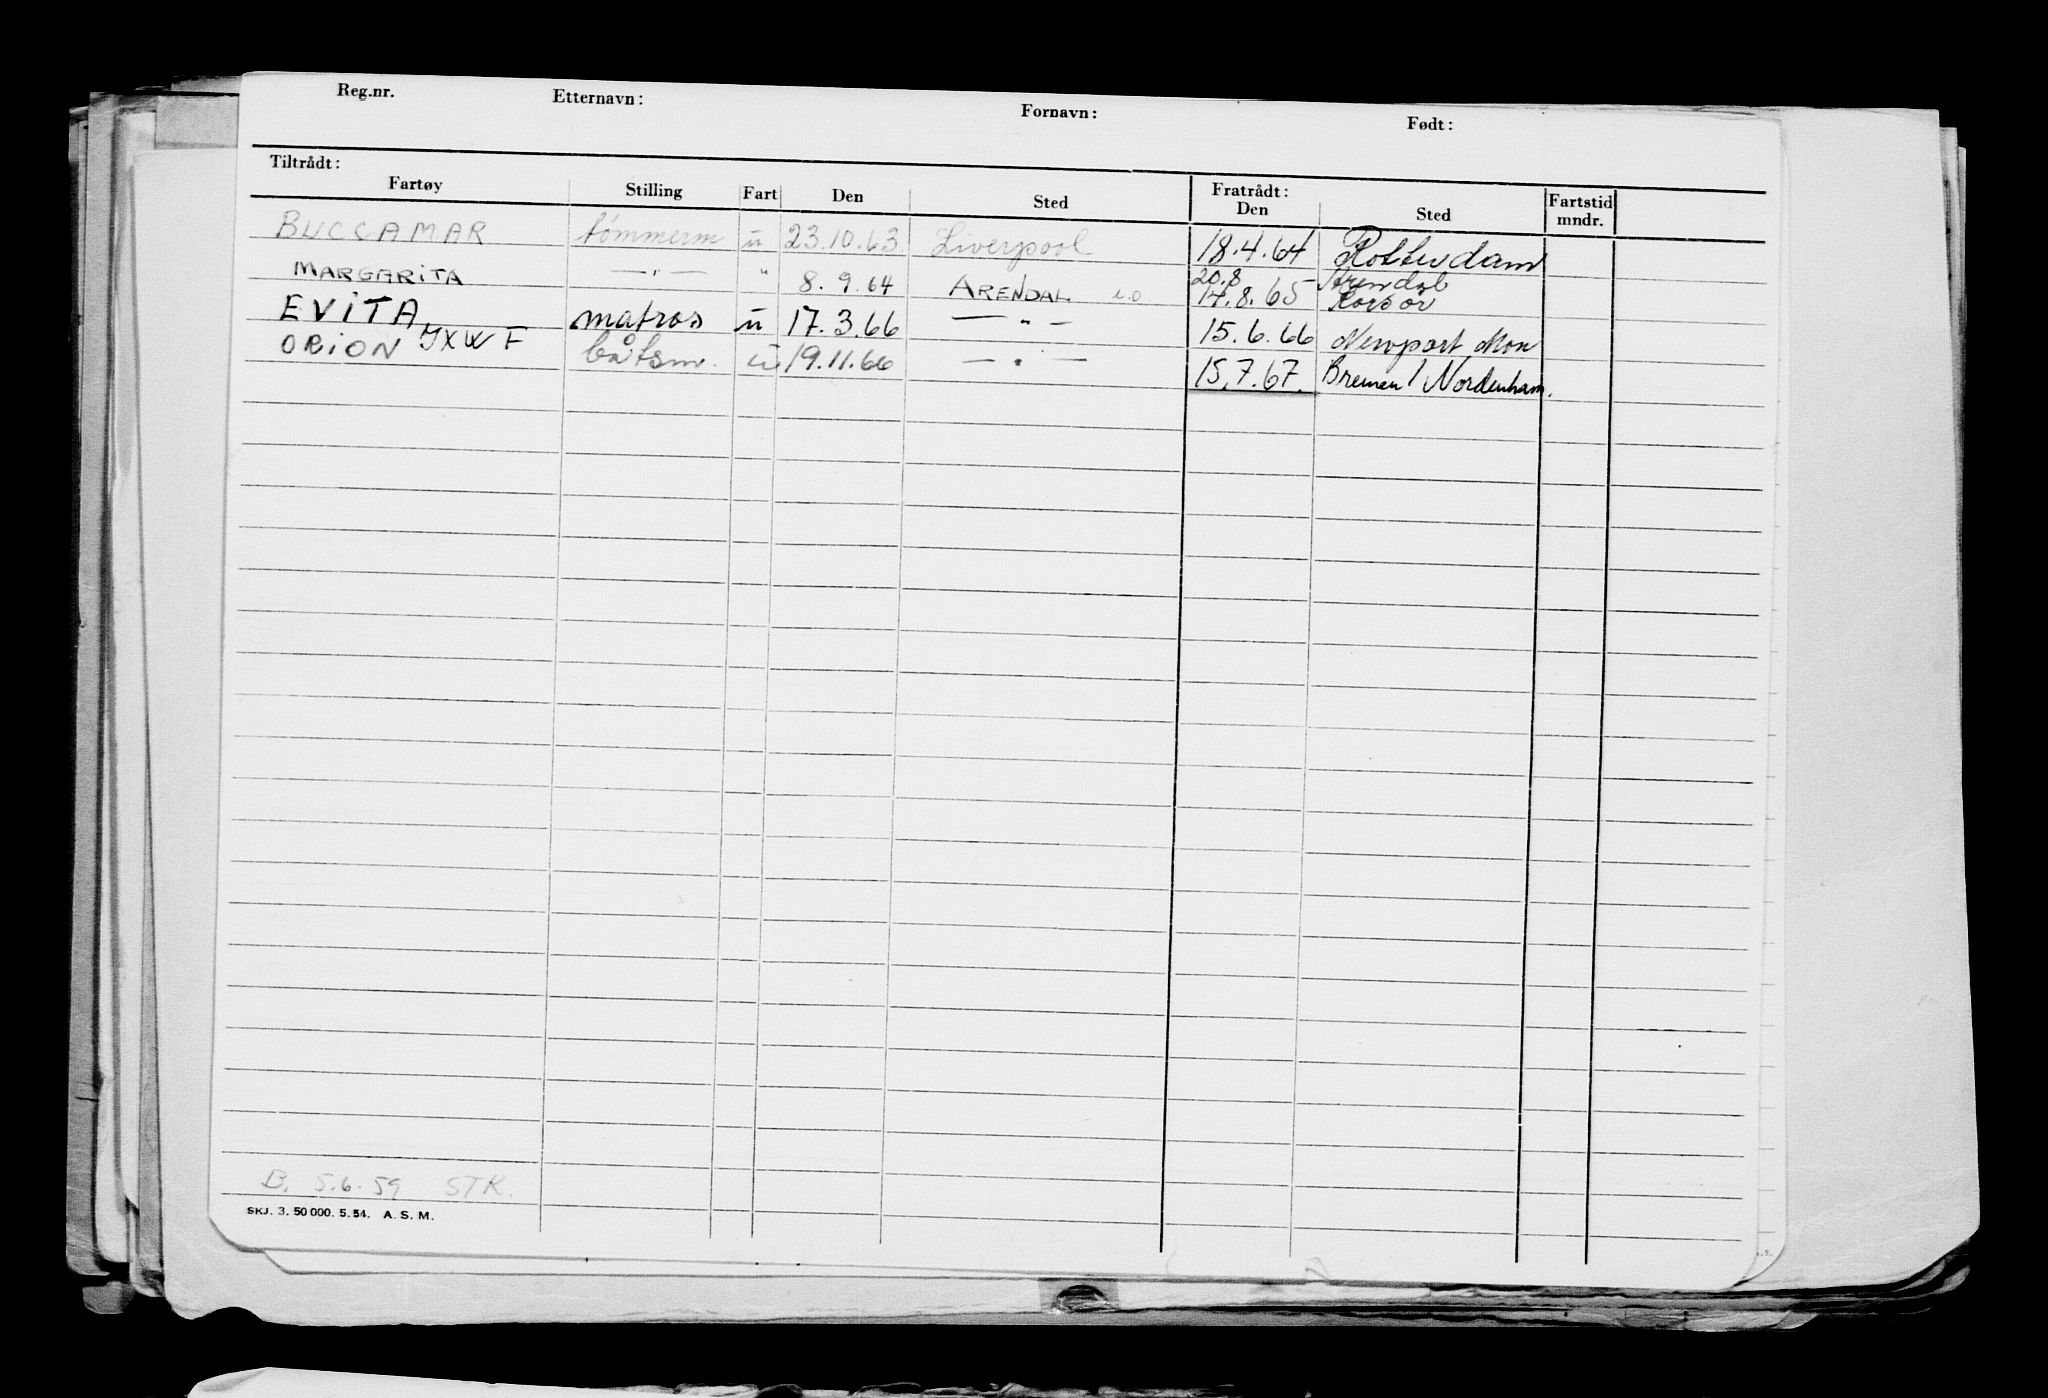 Reg.nr. Etternavn: Fornavn: Født:
Tiltrådt: Fratrådt:
Fartøy Stilling Fart Den Sted Den Sted Fartstid mndr.
BUCCAMAR tömmerm u 23.10.63 Liverpool 18.4.64 Rotterdam
MARGARITA —"— " 8.9.64 ARENDAL 20.8 Arendal
14.8.65 Korsør
EVITA matros u 17.3.66 —"— 15.6.66 Newport Mon
ORION JXWF båtsm. u 19.11.66 —"— 15.7.67. Bremen / Nordenham.
B. 5.6.59 STK.
SKJ. 3. 50 000. 5. 54. A. S. M.